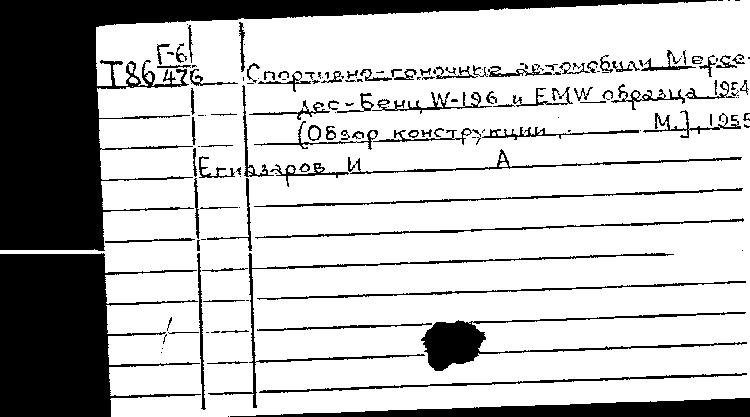 Т86 Г-6/476 Спортивно-гоночные автомобили Мерсе-
дес-Бенц W-196 и EMW образца 1954
(Обзор конструкции, М.], 1955
Егиазаров, И А